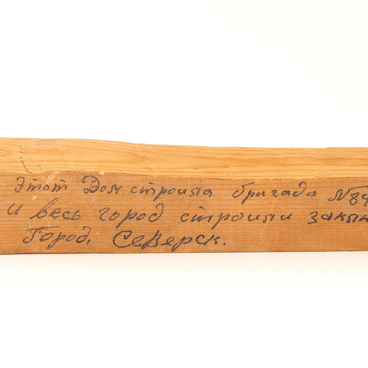 Этот Дом строила бригада №84
и весь город строили
Город. Северск.